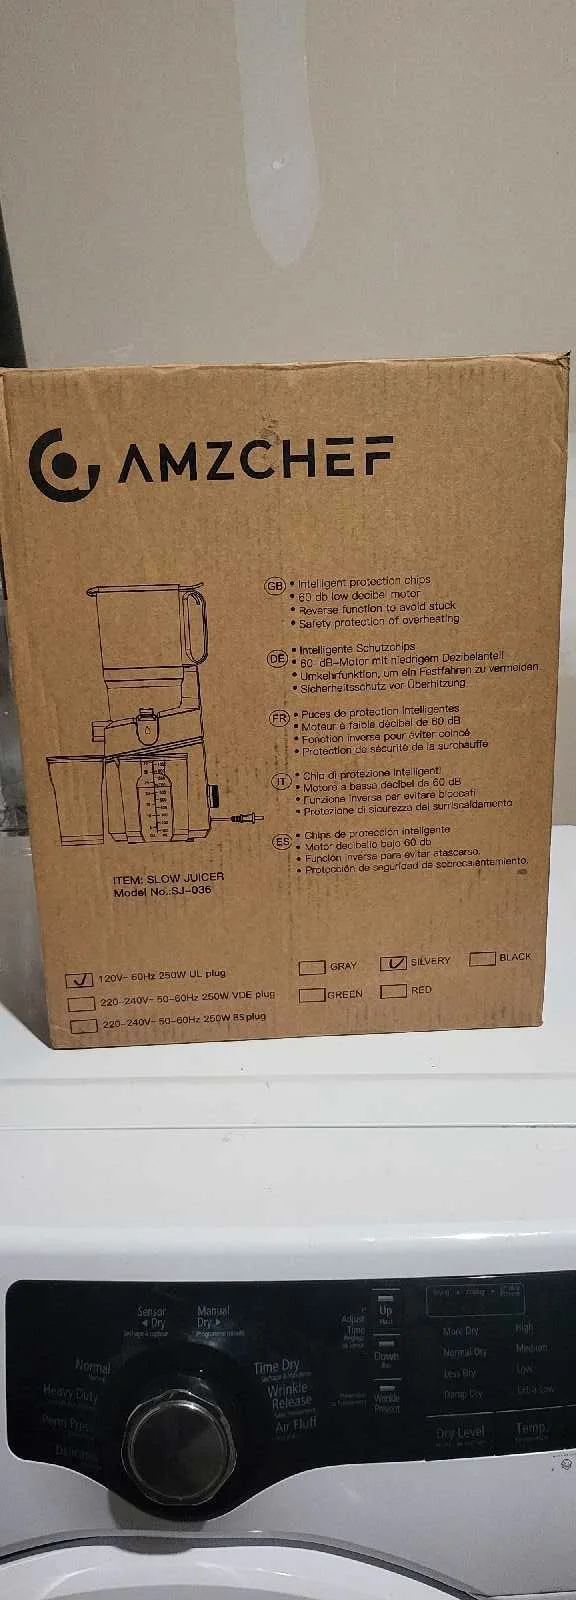 AMZCHEF
GB • Intelligent protection chips
• 60 db low decibel motor
• Reverse function to avoid stuck
• Safety protection of overheating
DE • Intelligente Schutzchips
• 60 dB-Motor mit niedrigem Dezibelanteil
• Umkehrfunktion, um ein Festfahren zu vermeiden
• Sicherheitsschutz vor Überhitzung
FR • Puces de protection intelligentes
• Moteur à faible décibel de 60 dB
• Fonction inverse pour éviter coincé
• Protection de sécurité de la surchauffe
IT • Chip di protezione intelligenti
• Motore a basso decibel da 60 dB
• Funzione inversa per evitare bloccati
• Protezione di sicurezza del surriscaldamento
ES • Chips de protección inteligente
• Motor decibelio bajo 60 db
• Función inversa para evitar atascarse.
• Protección de seguridad de sobrecalentamiento.
ITEM: SLOW JUICER
Model No.:SJ-036
120V~ 60Hz 250W UL plug
220-240V~ 50-60Hz 250W VDE plug
220-240V~ 50-60Hz 250W BS plug
GRAY SILVERY BLACK
GREEN RED
Sensor Dry
Manual Dry
Normal
Heavy Duty
Perm Press
Delicates
Time Dry
Wrinkle Release
Air Fluff
Adjust Time
Up
Down
Wrinkle Prevent
More Dry
Normal Dry
Less Dry
Damp Dry
High
Medium
Low
Dry Level
Temp.